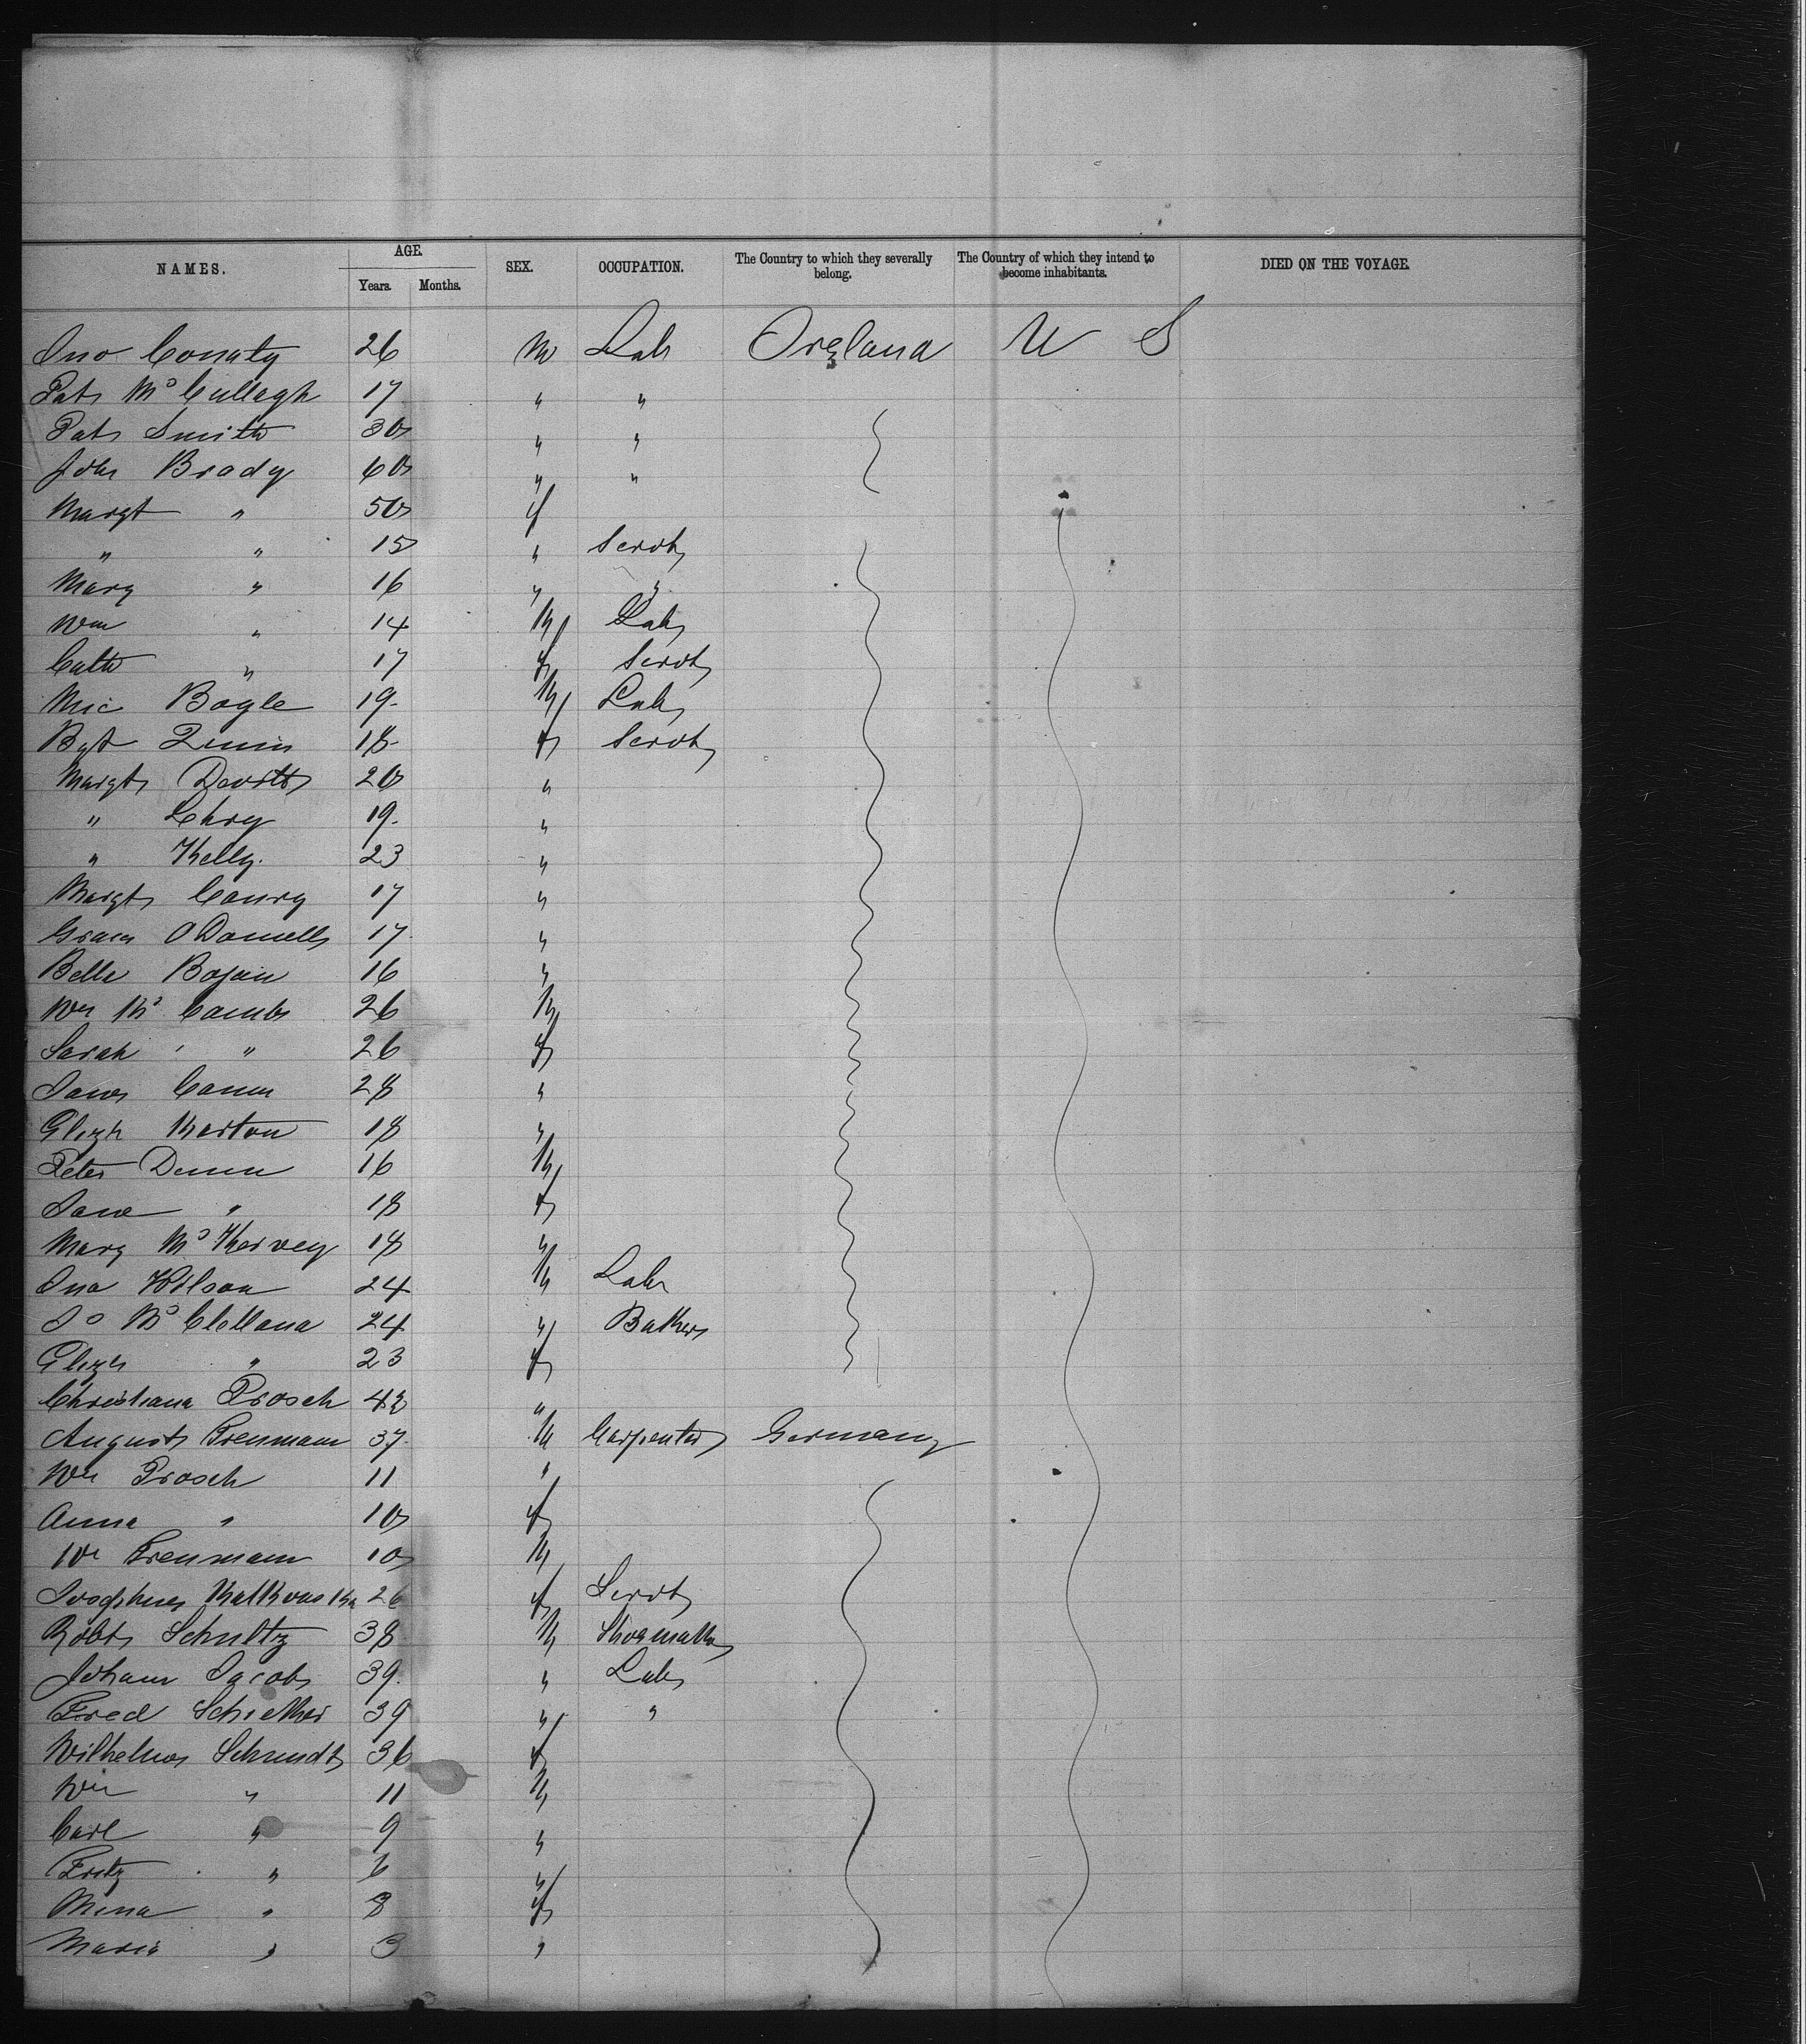 NAMES. AGE. Years. Months. SEX. OCCUPATION. The Country to which they severally belong. The Country of which they intend to become inhabitants. DIED ON THE VOYAGE.
Jno Conaty 26 M Lab Ireland U S
Pat McCullagh 17 " "
Pat Smith 30 " "
John Brady 60 " "
Margt " 50 f
" " 15 " Servt
Mary " 16 " "
Wm " 14 M Lab
Cath " 17 f Servt
Mic Bogle 19 M Lab
Bgt Quinn 18 f Servt
Margt Devitt 20 "
" 19 "
" Kelly 23 "
Margt Conry 17 "
Grace O'Donnell 17 "
Bella 16 "
Wm McCambs 26 M
Sarah " " 26 f
28 "
Elizh Marton 18 "
Peter 16 M
Jane " 18 f
Mary McKervey 18 "
Jno Wilson 24 M Lab
Jo McClelland 24 " Baker
Elizh " 23 f
Christiana Prosch 42 "
August 37 M Carpenter Germany
Wm Prosch 11 "
Anna " 10 f
Wm 10 M
26 f Servt
Robt Schultz 38 M Shoemaker
Johann Jacobs 39 " Lab
Fred 39 " "
Wilhelmn Schmidt 36 f
Wm " 11 M
Carl " 9 "
Fritz " 6 "
Mina " 8 f
Maria " 3 "